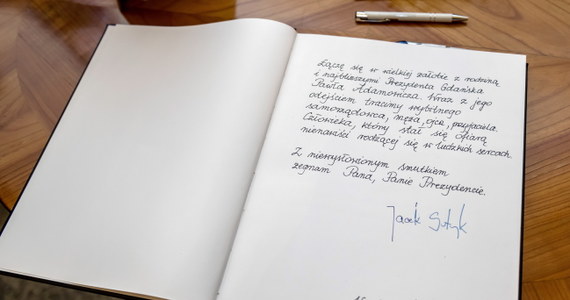 Łączę się w wielkiej żałobie z rodziną
i najbliższymi Prezydenta Gdańska
Pawła Adamowicza. Wraz z jego
odejściem tracimy wybitnego
samorządowca, męża, ojca, przyjaciela.
Człowieka, który stał się ofiarą
nienawiści rodzącej się w ludzkich sercach.
Z niewysłowionym smutkiem
żegnam Pana, Panie Prezydencie.
Jacek Sutryk